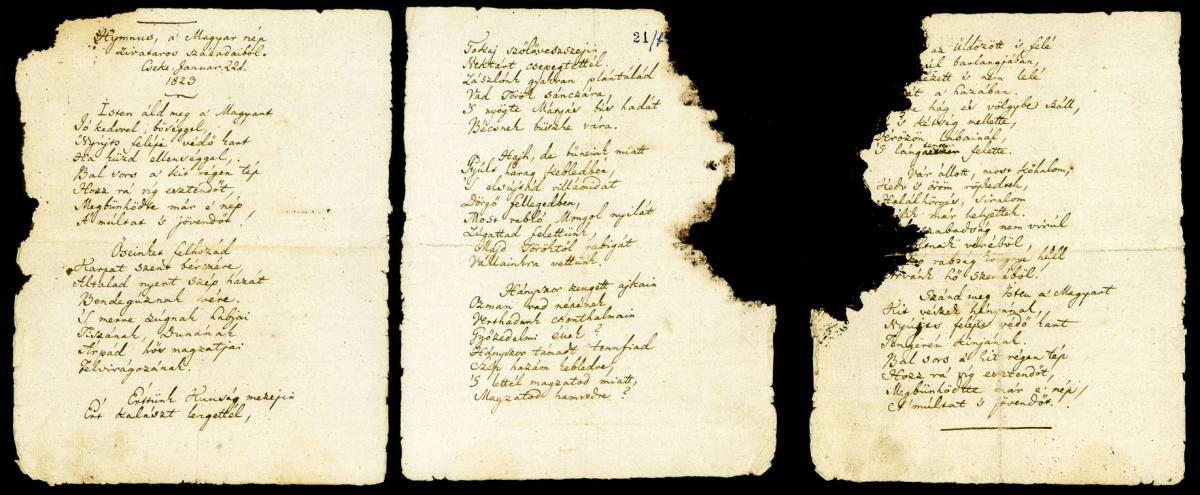 Hymnus, a' Magyar nép
zivataros századaiból.
Cseke, Januar. 22d.
1823
Isten áldd meg a' Magyart
Jó kedvvel, bőséggel,
Nyújts feléje védő kart
Ha küzd ellenséggel;
Bal sors a' kit régen tép
Hozz rá víg esztendőt,
Megbűnhödte már e' nép
A' múltat 's jövendőt!
Őseinket felhozád
Karpat szent bérczére,
Általad nyert szép hazát
Bendegúznak vére.
'S merre zúgnak habjai
Tiszának, Dunának
Árpád hős magzatjai
Felvirágozának.
Értünk Kunság mezejin
Ért kalászt lengettél,
21/
Tokaj szőlővesszejin
Nektárt csepegtettél.
Zászlónk gyakran plántálád
Vad Török sánczára,
'S nyögte Mátyás bús hadát
Bécsnek büszke vára.
Hajh, de bűneink miatt
Gyúlt harag kebledben,
'S elsújtád villámidat
Dörgő fellegedben,
Most rabló Mongol nyilát
Zúgattad felettünk,
Majd Töröktől rabigát
Vállainkra vettünk.
Hányszor zengett ajkain
Ozman vad népének
Vert hadunk csonthalmain
Győzedelmi ének?
Hányszor támadt tennfiad
Szép hazám kebledre,
'S lettél magzatod miatt,
Magzatod hamvedre?
az üldözött 's felé
barlangjában,
's nem lelé
a' hazában.
hág és völgybe száll,
's kétség mellette,
lábainál,
'S lángtenger felette.
Vár állott, most kőhalom,
Kedv 's öröm röpkedtek,
Halálhörgés, siralom
már helyettek.
szabadság nem virúl
véréből,
rabság könnye hull
hő szeméből.
Szánd meg Isten a' Magyart
Kit vészek hányának,
Nyújts feléje védő kart
Tengerén kínjának.
Bal sors a' kit régen tép
Hozz rá víg esztendőt,
Megbűnhödte már e' nép
A' múltat 's jövendőt.